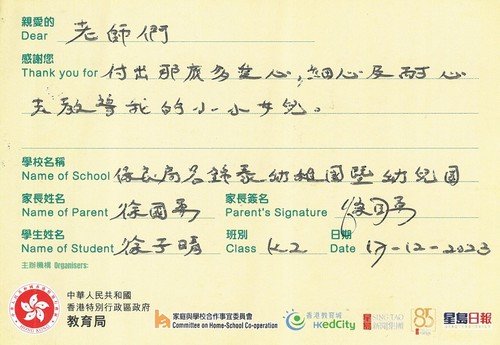 親愛的
Dear 老師們
感謝您
Thank you for 付出那麼多愛心,細心及耐心
去教導我的小小女兒。
學校名稱
Name of School 保良局呂錦泰幼稚園暨幼兒園
家長姓名 家長簽名
Name of Parent 徐國 Parent's Signature 徐國
學生姓名 班別 日期
Name of Student 徐子晴 Class K2 Date 17-12-2023
主辦機構 Organisers:
中華人民共和國
香港特別行政區政府
教育局
家庭與學校合作事宜委員會
Committee on Home-School Co-operation
香港教育城
HKedCity
星島新聞集團
SING TAO
85
星島日報